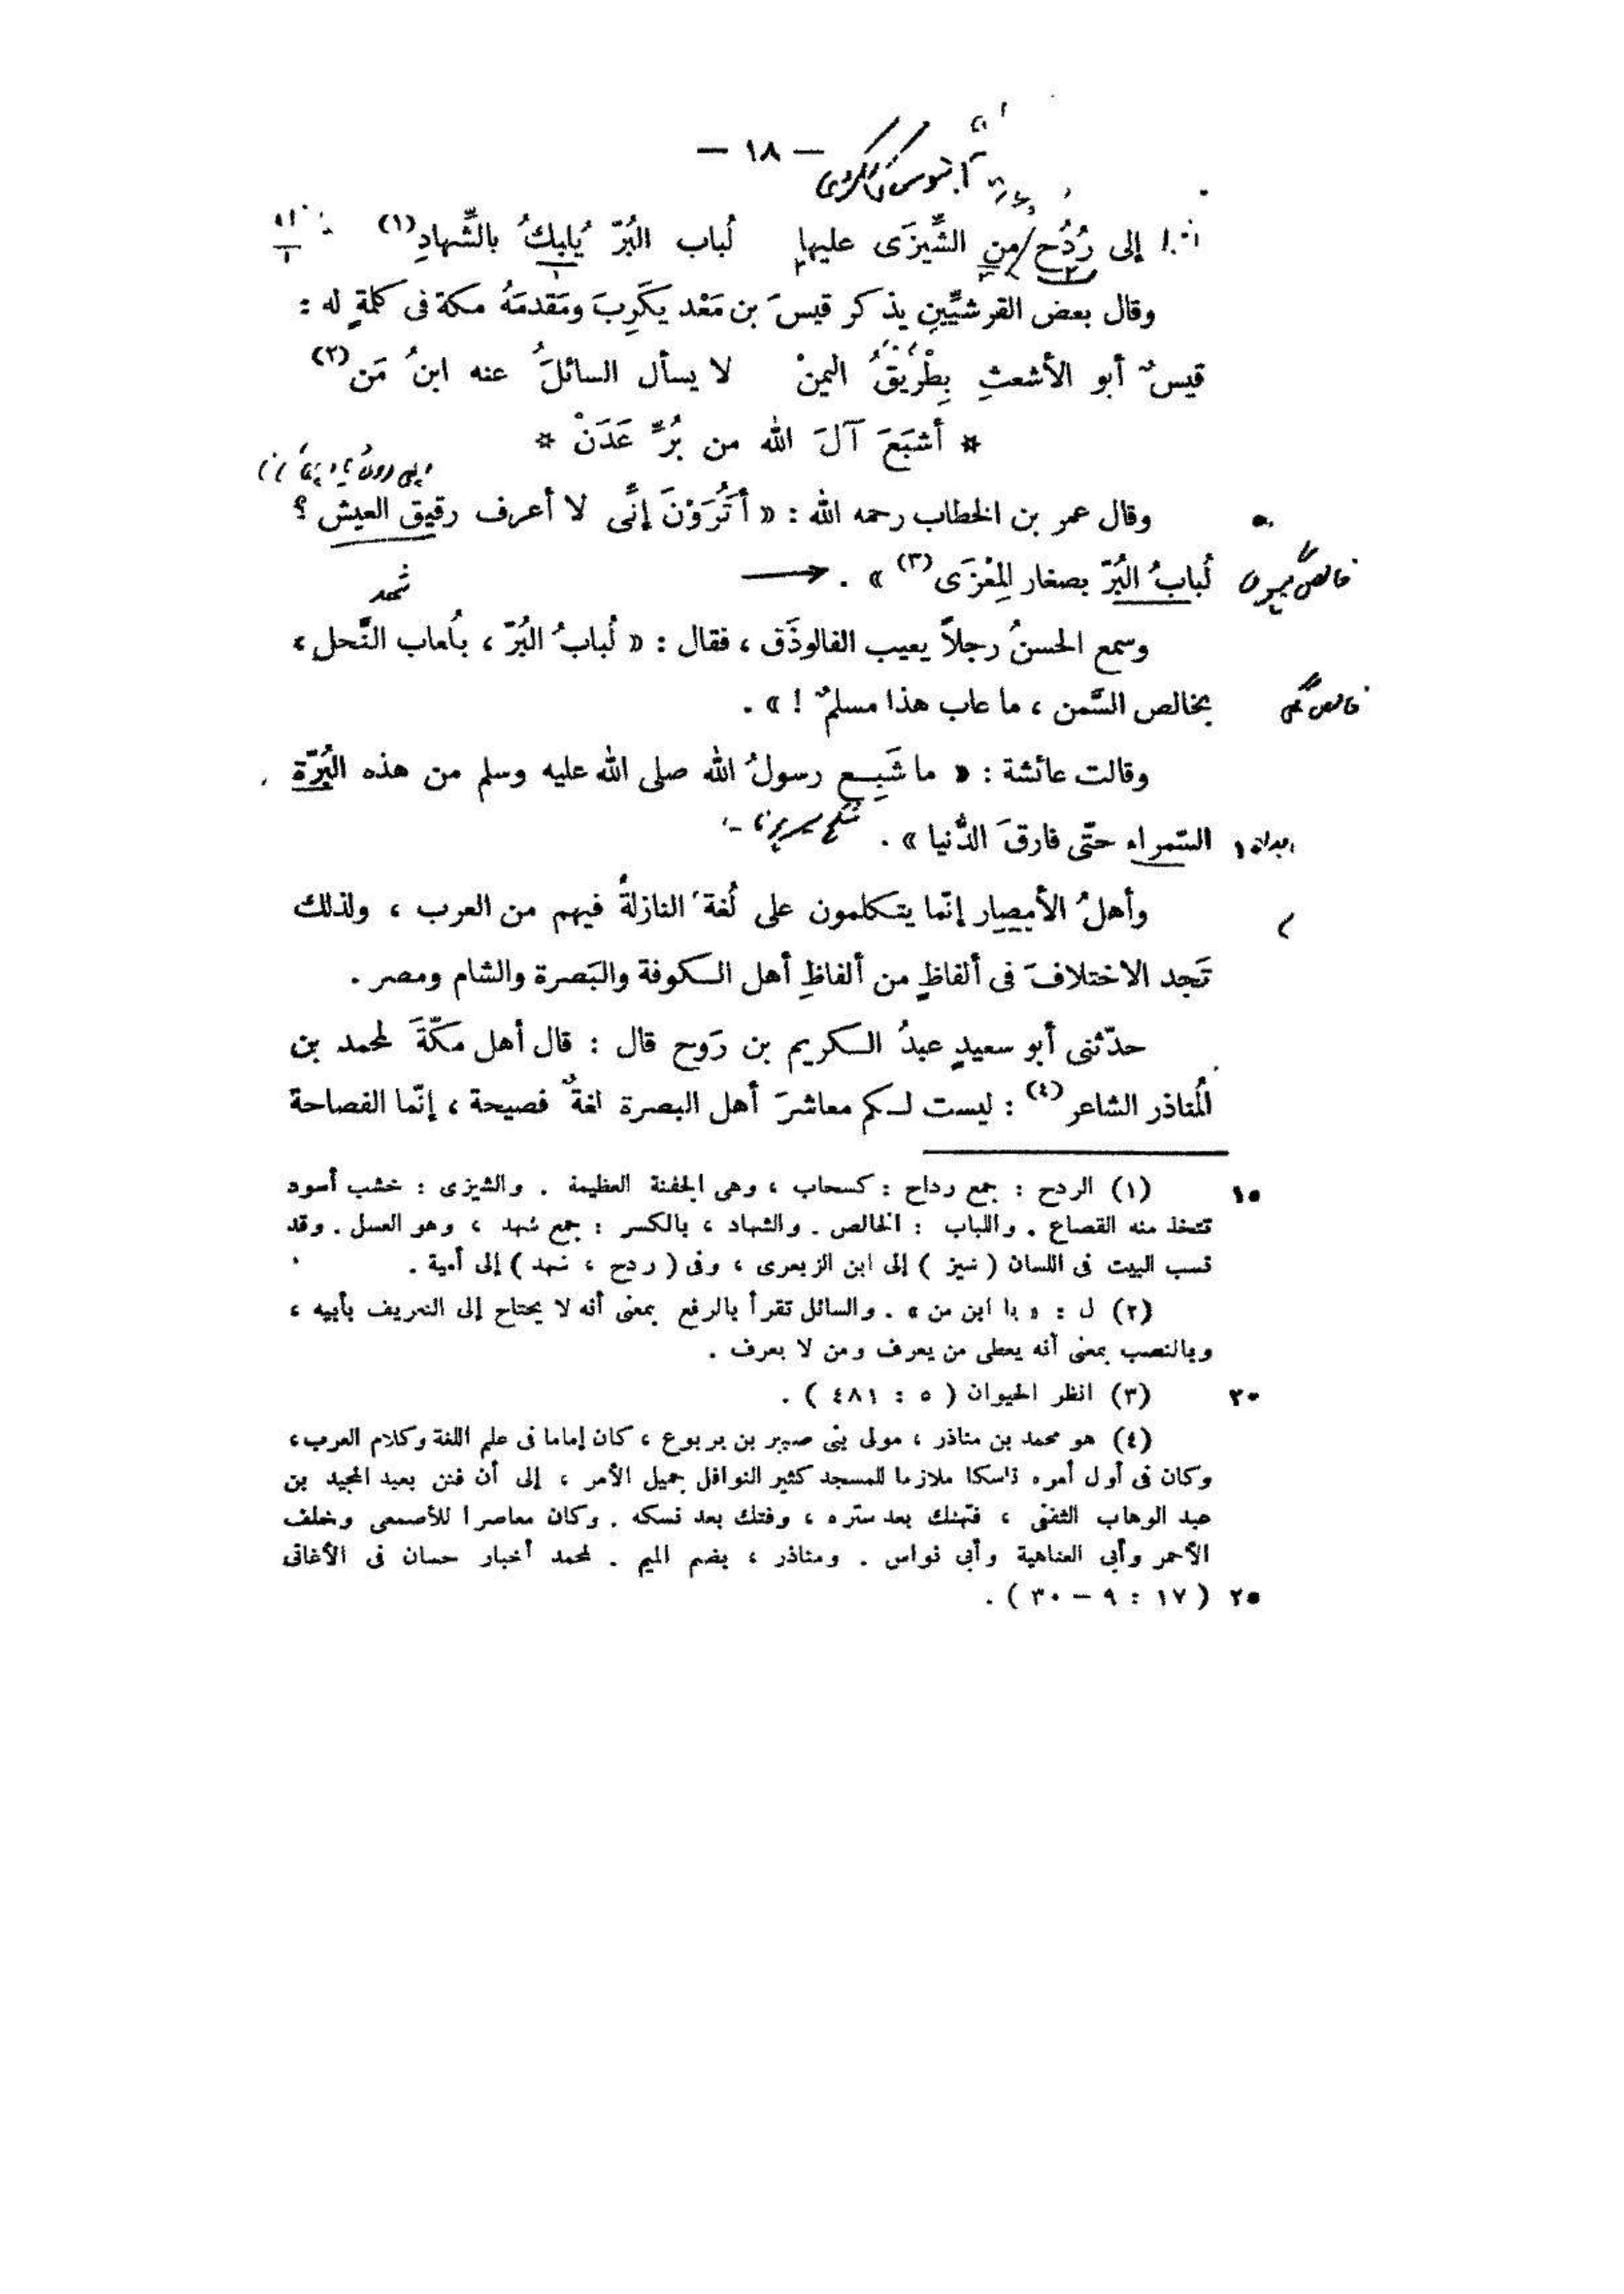 — ١٨ —
إلى رُدُح من الشِّيزَى عليها لُباب البُرّ يُلبكُ بالشِّهادِ (١)
وقال بعض القرشيِّين يذكر قيسَ بن مَعْد يكَرِبَ ومَقدمَهُ مكة فى كلمةٍ له :
قيسٌ أبو الأشعثِ بِطْرِيقُ اليمنْ لا يسأل السائلُ عنه ابنُ مَن (٢)
* أشبَعَ آلَ الله من بُرِّ عَدَنْ *
وقال عمر بن الخطاب رحمه الله : « أتُرَوْنَ إنِّى لا أعرف رقيق العيش ؟
٥
لُبابُ البُرّ بصغار المِعْزَى (٣) » .
شهد
وسمع الحسنُ رجلاً يعيب الفالوذَق ، فقال : « لُبابُ البُرّ ، بلُعاب النَّحل ،
بخالص السَّمن ، ما عاب هذا مسلمٌ ! » .
وقالت عائشة : « ما شَبِع رسولُ الله صلى الله عليه وسلم من هذه البُرّة
السّمراء حتّى فارقَ الدُّنيا » .
وأهلُ الأمصار إنّما يتكلمون على لُغة النازلةُ فيهم من العرب ، ولذلك
تَجد الاختلافَ فى ألفاظٍ من ألفاظِ أهل الكوفة والبَصرة والشام ومصر .
حدّثنى أبو سعيدٍ عبدُ الكريم بن رَوح قال : قال أهل مكّةَ لمحمد بن
المُناذر الشاعر (٤) : ليست لكم معاشرَ أهل البصرة لغةٌ فصيحة ، إنّما الفصاحة
(١) الردح : جمع رداح : كسحاب ، وهى الجفنة العظيمة . والشيزى : خشب أسود
١٥
تتخذ منه القصاع . واللباب : الخالص . والشهاد ، بالكسر : جمع شهد ، وهو العسل . وقد
نسب البيت فى اللسان ( شيز ) إلى ابن الزبعرى ، وفى ( ردح ، شهد ) إلى أمية .
(٢) ل : « با ابن من » . والسائل تقرأ بالرفع بمعنى أنه لا يحتاج إلى التعريف بأبيه ،
وبالنصب بمعنى أنه يعطى من يعرف ومن لا يعرف .
(٣) انظر الحيوان ( ٥ : ٤٨١ ) .
٢٠
(٤) هو محمد بن مناذر ، مولى بنى صبير بن يربوع ، كان إماما فى علم اللغة وكلام العرب ،
وكان فى أول أمره ناسكا ملازما للمسجد كثير النوافل جميل الأمر ، إلى أن فتن بعبد المجيد بن
عبد الوهاب الثقفى ، فتهتك بعد ستره ، وفتك بعد نسكه . وكان معاصرا للأصمعى وخلف
الأحمر وأبى العتاهية وأبى نواس . ومناذر ، بضم الميم . لمحمد أخبار حسان فى الأغانى
٢٥ ( ١٧ : ٩ – ٣٠ ) .